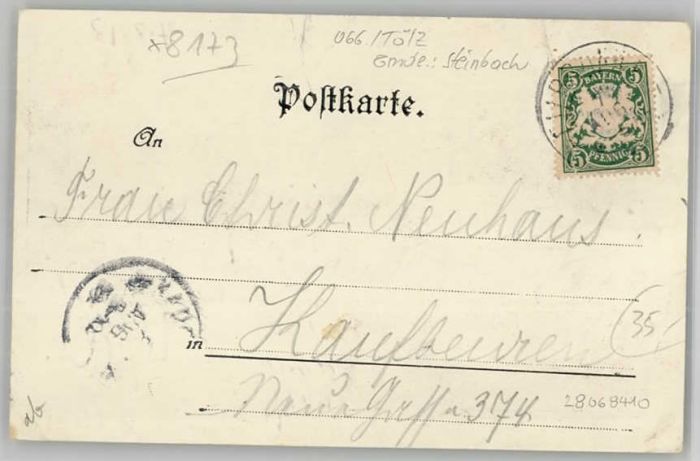 x8173
066./Tölz
Gmde.: Steinbach
5 BAYERN 5
5 PFENNIG 5
Postkarte.
An
Frau Christ. Neuhaus.
in Kaufbeuren
35
Neue Gasse 374
28068410